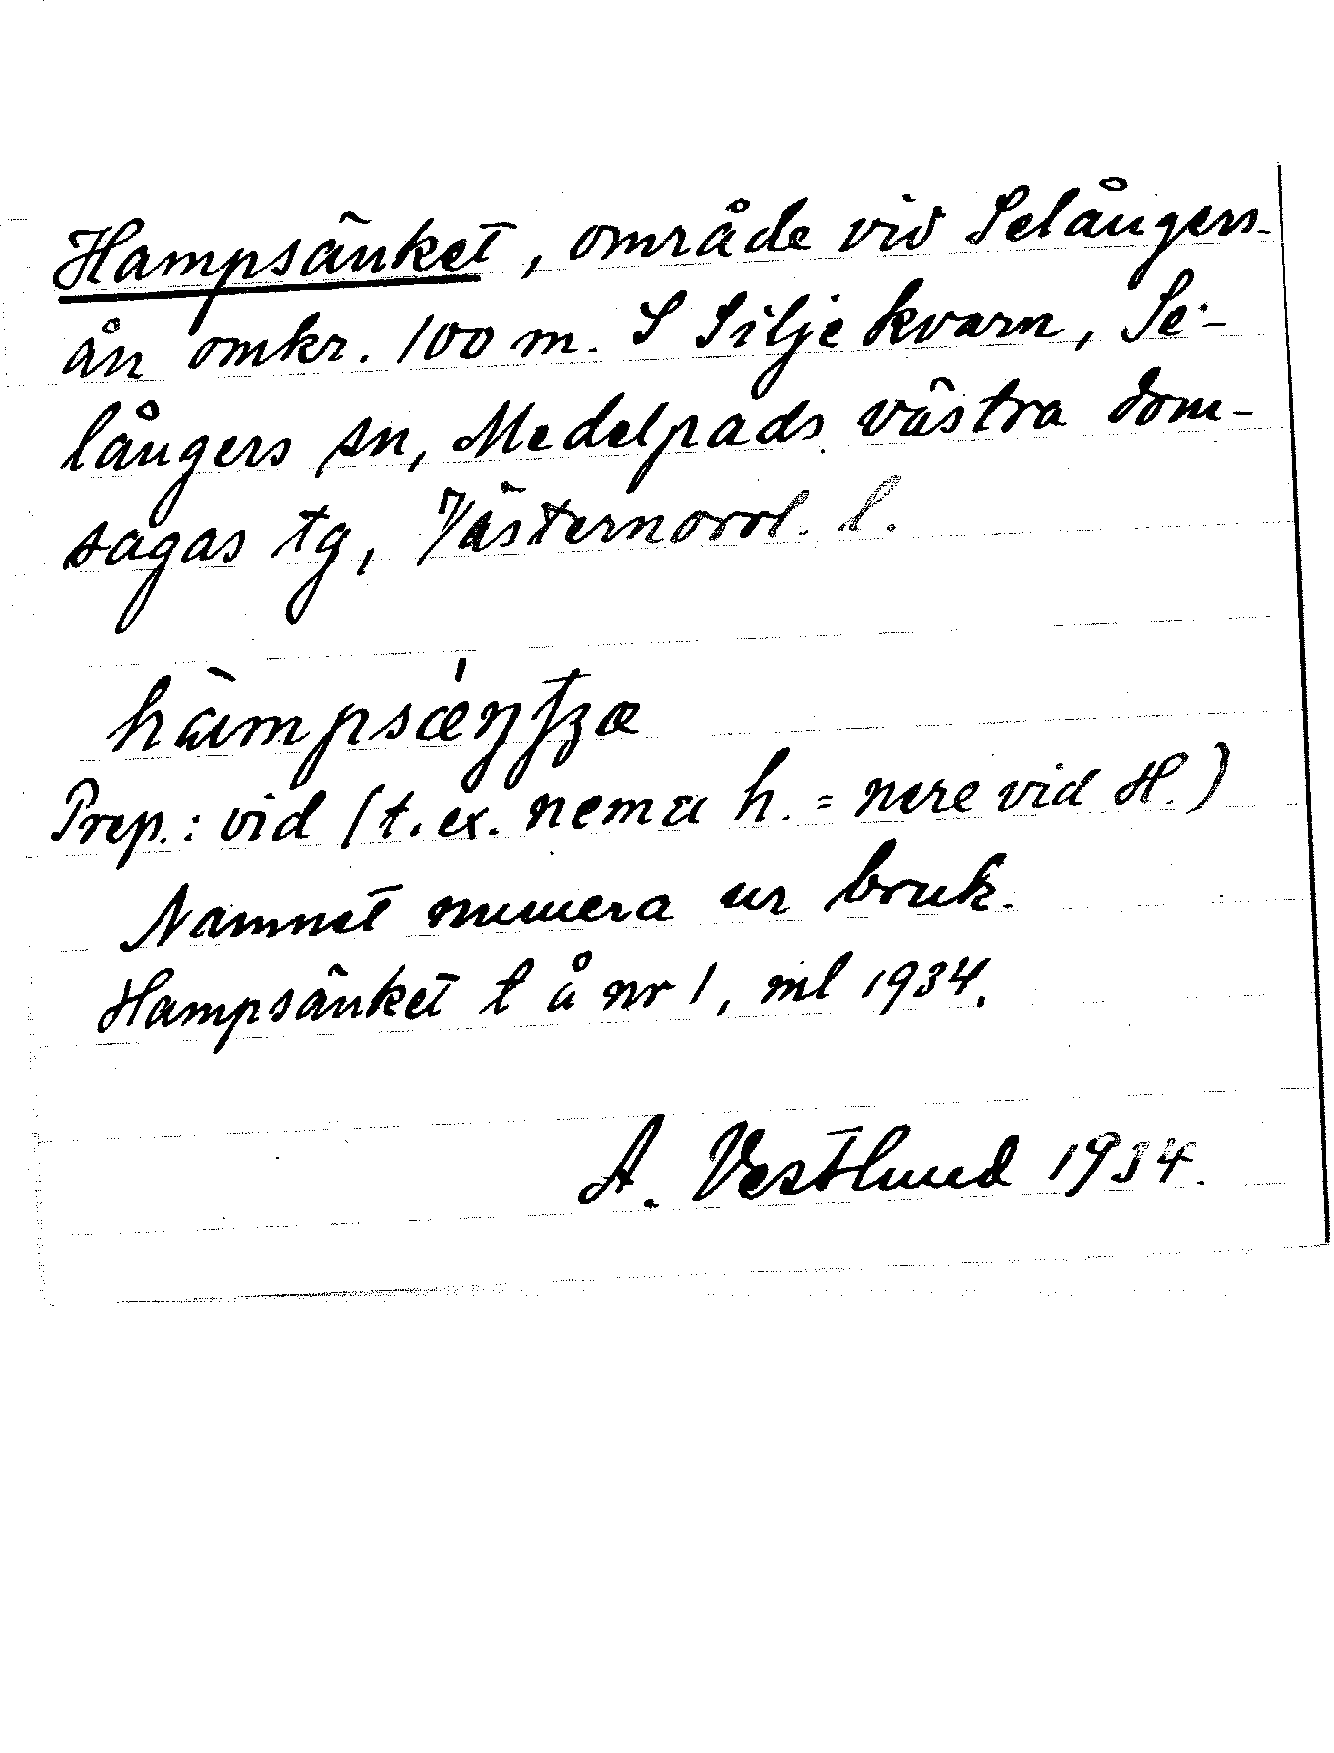 Hampsänket, område vid Selångers-
ån omkr. 100 m. S Silje kvarn, Se-
långers sn, Medelpads västra dom-
sagas tg, Västernorrl. l.
hàmpsæ̀ŋʈʒæ
Prep.: vid (t. ex. nema h. = nere vid H.)
Namnet numera ur bruk.
Hampsänket l å nr 1, ml 1934.
A. Vestlund 1934.